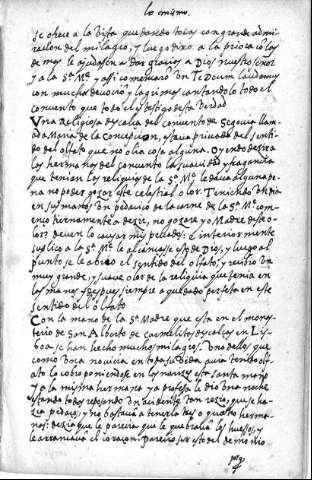 lo mismo.
se ofrece a la vista quedando todas con grande admi
racion del milagro, y luego dixo a la priora y las
demas le ayudasen a dar gracias a Dios nuestro señor
y a la Sta Me y assi començaron un Te Deum laudamus
con mucha devocion y lagrimas cantandolo todo el
convento que todo el es testigo desta verdad
Una Religiosa descalça del convento de Segovia llama
da Maria de la Concepcion, estava privada del senti
do del olfato que no olia cosa alguna. Oyendo dezir a
las hermanas del convento la suavidad y fragancia
que tenian las reliquias de la Sta Me le dava alguna pe
na no poder gozar este celestial olor. Teniendo
en sus manos un pedacico de la carne de la Sta Me co
menço tiernamente a dezir, no gozare yo Madre deste o
lor? deven lo causar mis pecados: e interiormente
suplico a la Sta Me le alcançase esto de Dios, y luego al
punto se le abrio el sentido del olfato, y recibio un
muy grande, y suave olor de la reliquia que tenia en
las manos y despues siempre a quedado perfeta en este
sentido del olfato
Con la mano de la Sta Madre que esta en el monas
terio de San Alberto de Carmelitas descalças en Lis
boa se han hecho muchos milagros. Uno dellos que
como una novicia en toda su vida avia tenido olf
ato la cobro poniendose en las narizes esta santa mano
Y a la misma hermana ya profesa le dio una noche
estando todas reposando un accidente tan rezio, que se ha
zia pedaços, y no bastavan a tenerla tres o quatro herma
nas: dezia que le parecia que le quebravan los huesos, y
le arrancavan el coraçon. Parecio ser esto del demonio